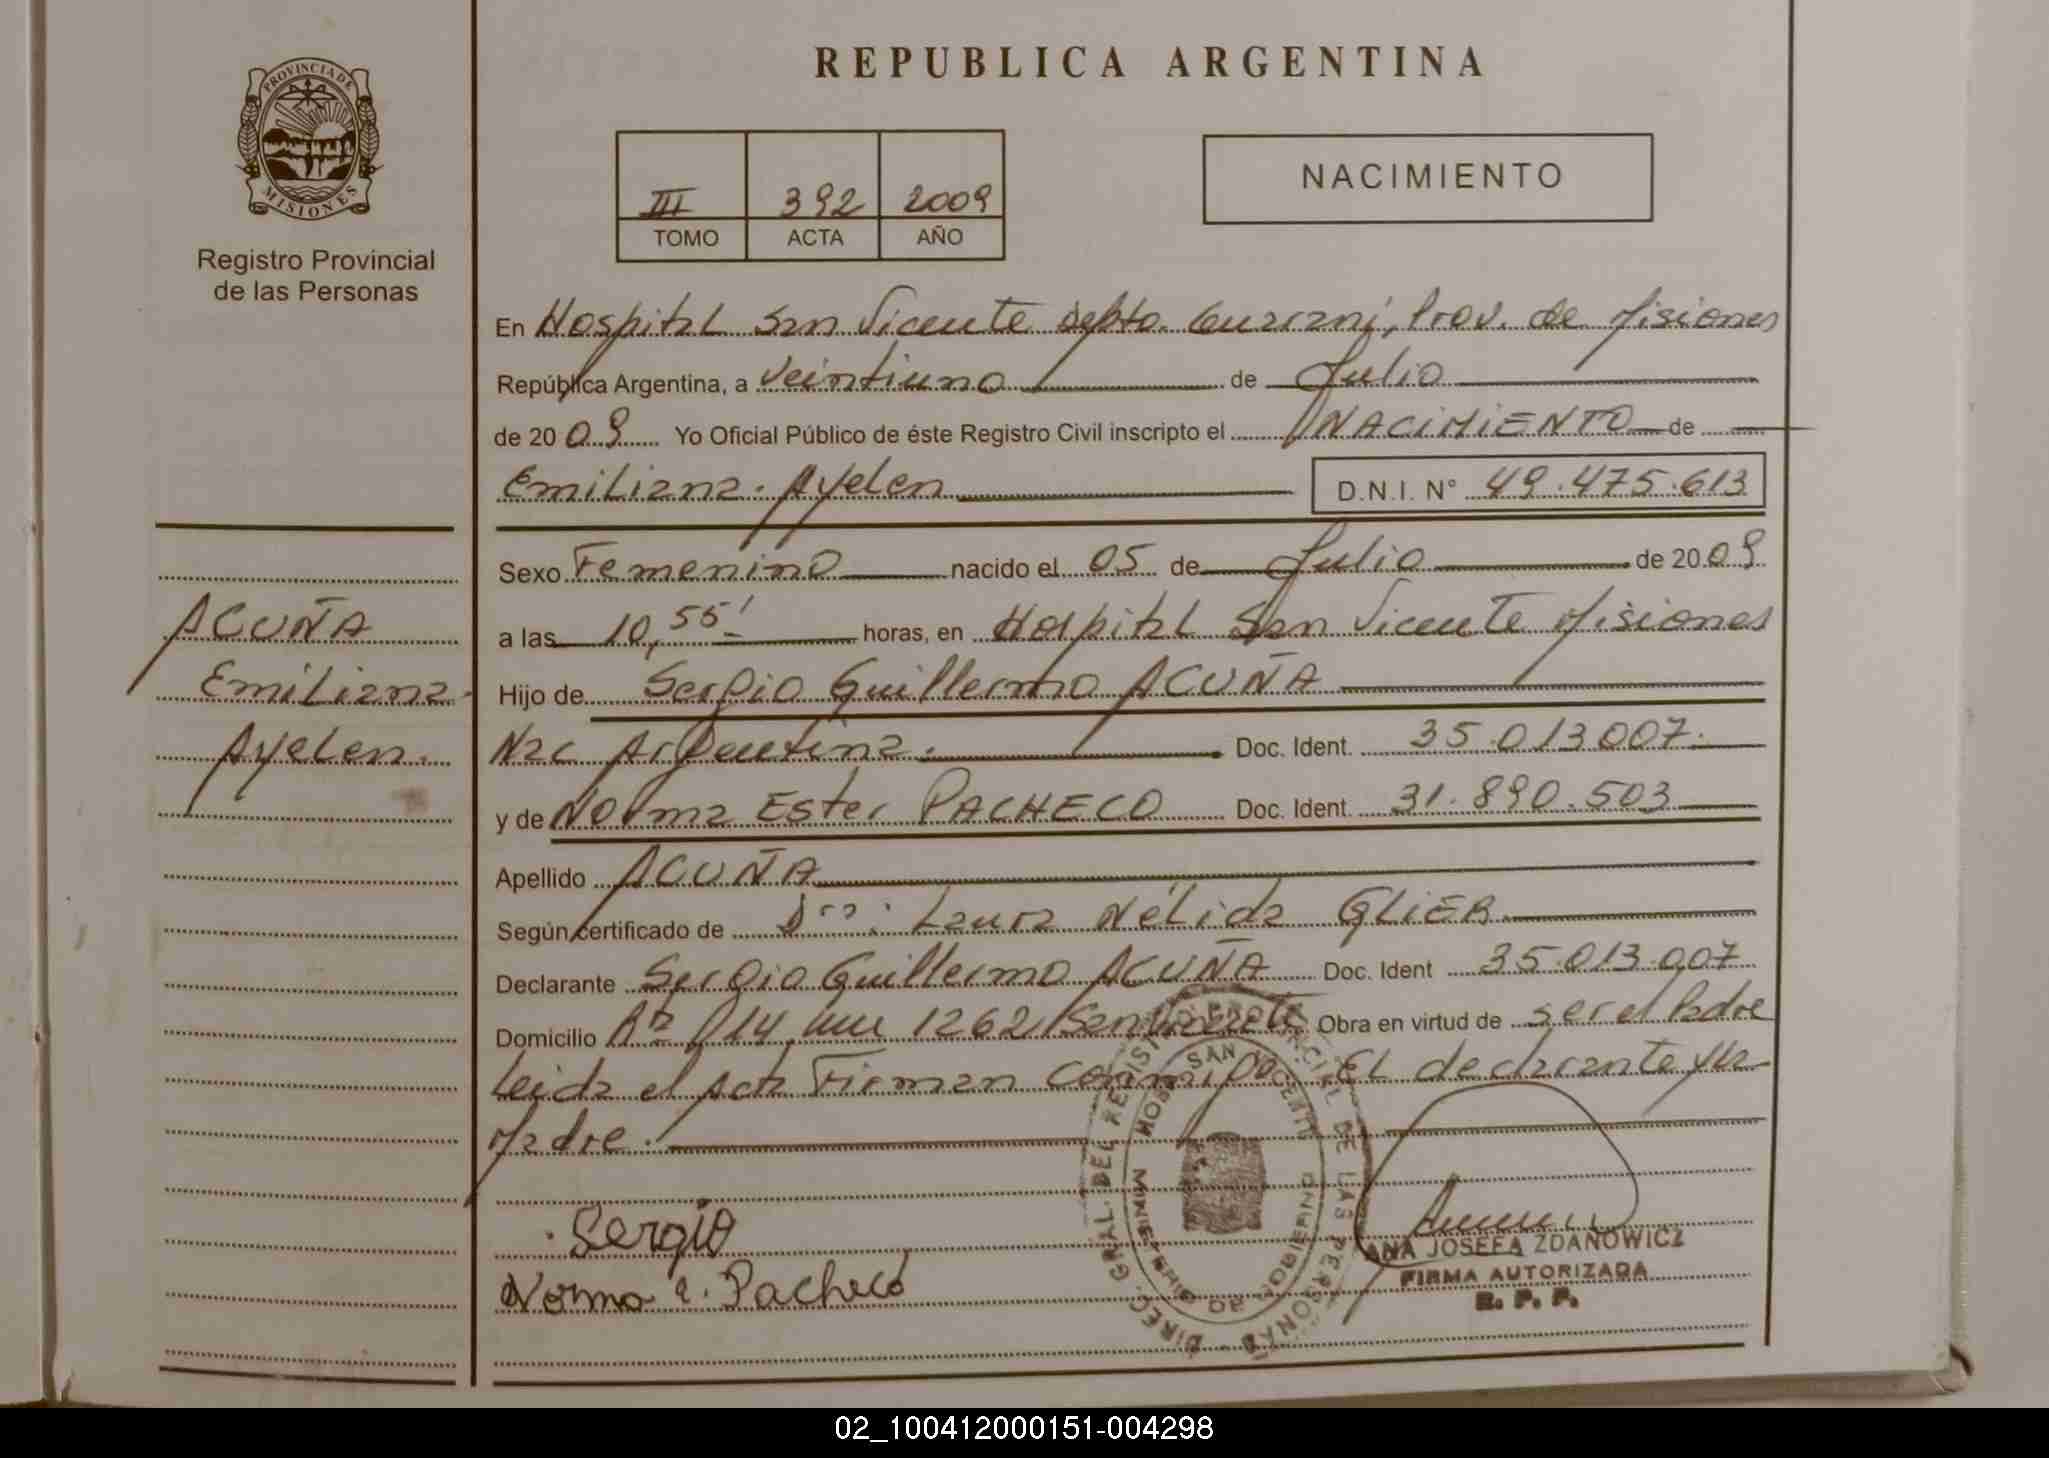 PROVINCIA DE
MISIONES
Registro Provincial
de las Personas
ACUÑA
Emiliana
Ayelen.
REPUBLICA ARGENTINA
III 392 2009
TOMO ACTA AÑO
NACIMIENTO
En Hospital San Vicente Depto. Guarani, Prov. de Misiones
República Argentina, a veintiuno de Julio
de 2009 Yo Oficial Público de éste Registro Civil inscripto el NACIMIENTO de
Emiliana Ayelen D.N.I. N° 49.475.613
Sexo Femenino nacido el 05 de Julio de 2009
a las 10,55' horas, en Hospital San Vicente Misiones
Hijo de Sergio Guillermo ACUÑA
Nac Argentina. Doc. Ident. 35.013.007.
y de Norma Ester PACHECO Doc. Ident. 31.890.503
Apellido ACUÑA
Según certificado de Dra: Laura Nélida GLIER
Declarante Sergio Guillermo ACUÑA Doc. Ident 35.013.007
Domicilio Ra 14 km 1262 San Vicente Obra en virtud de ser el Padre
Leida el Acta Firman conmigo El declarante y la
Madre.
Sergio
Norma E. Pacheco
DIREC. GRAL. DEL REGISTRO PROVINCIAL DE LAS PERSONAS
SAN VICENTE
MINISTERIO DE GOBIERNO
ANA JOSEFA ZDANOWICZ
FIRMA AUTORIZADA
R. P. P.
02_100412000151-004298